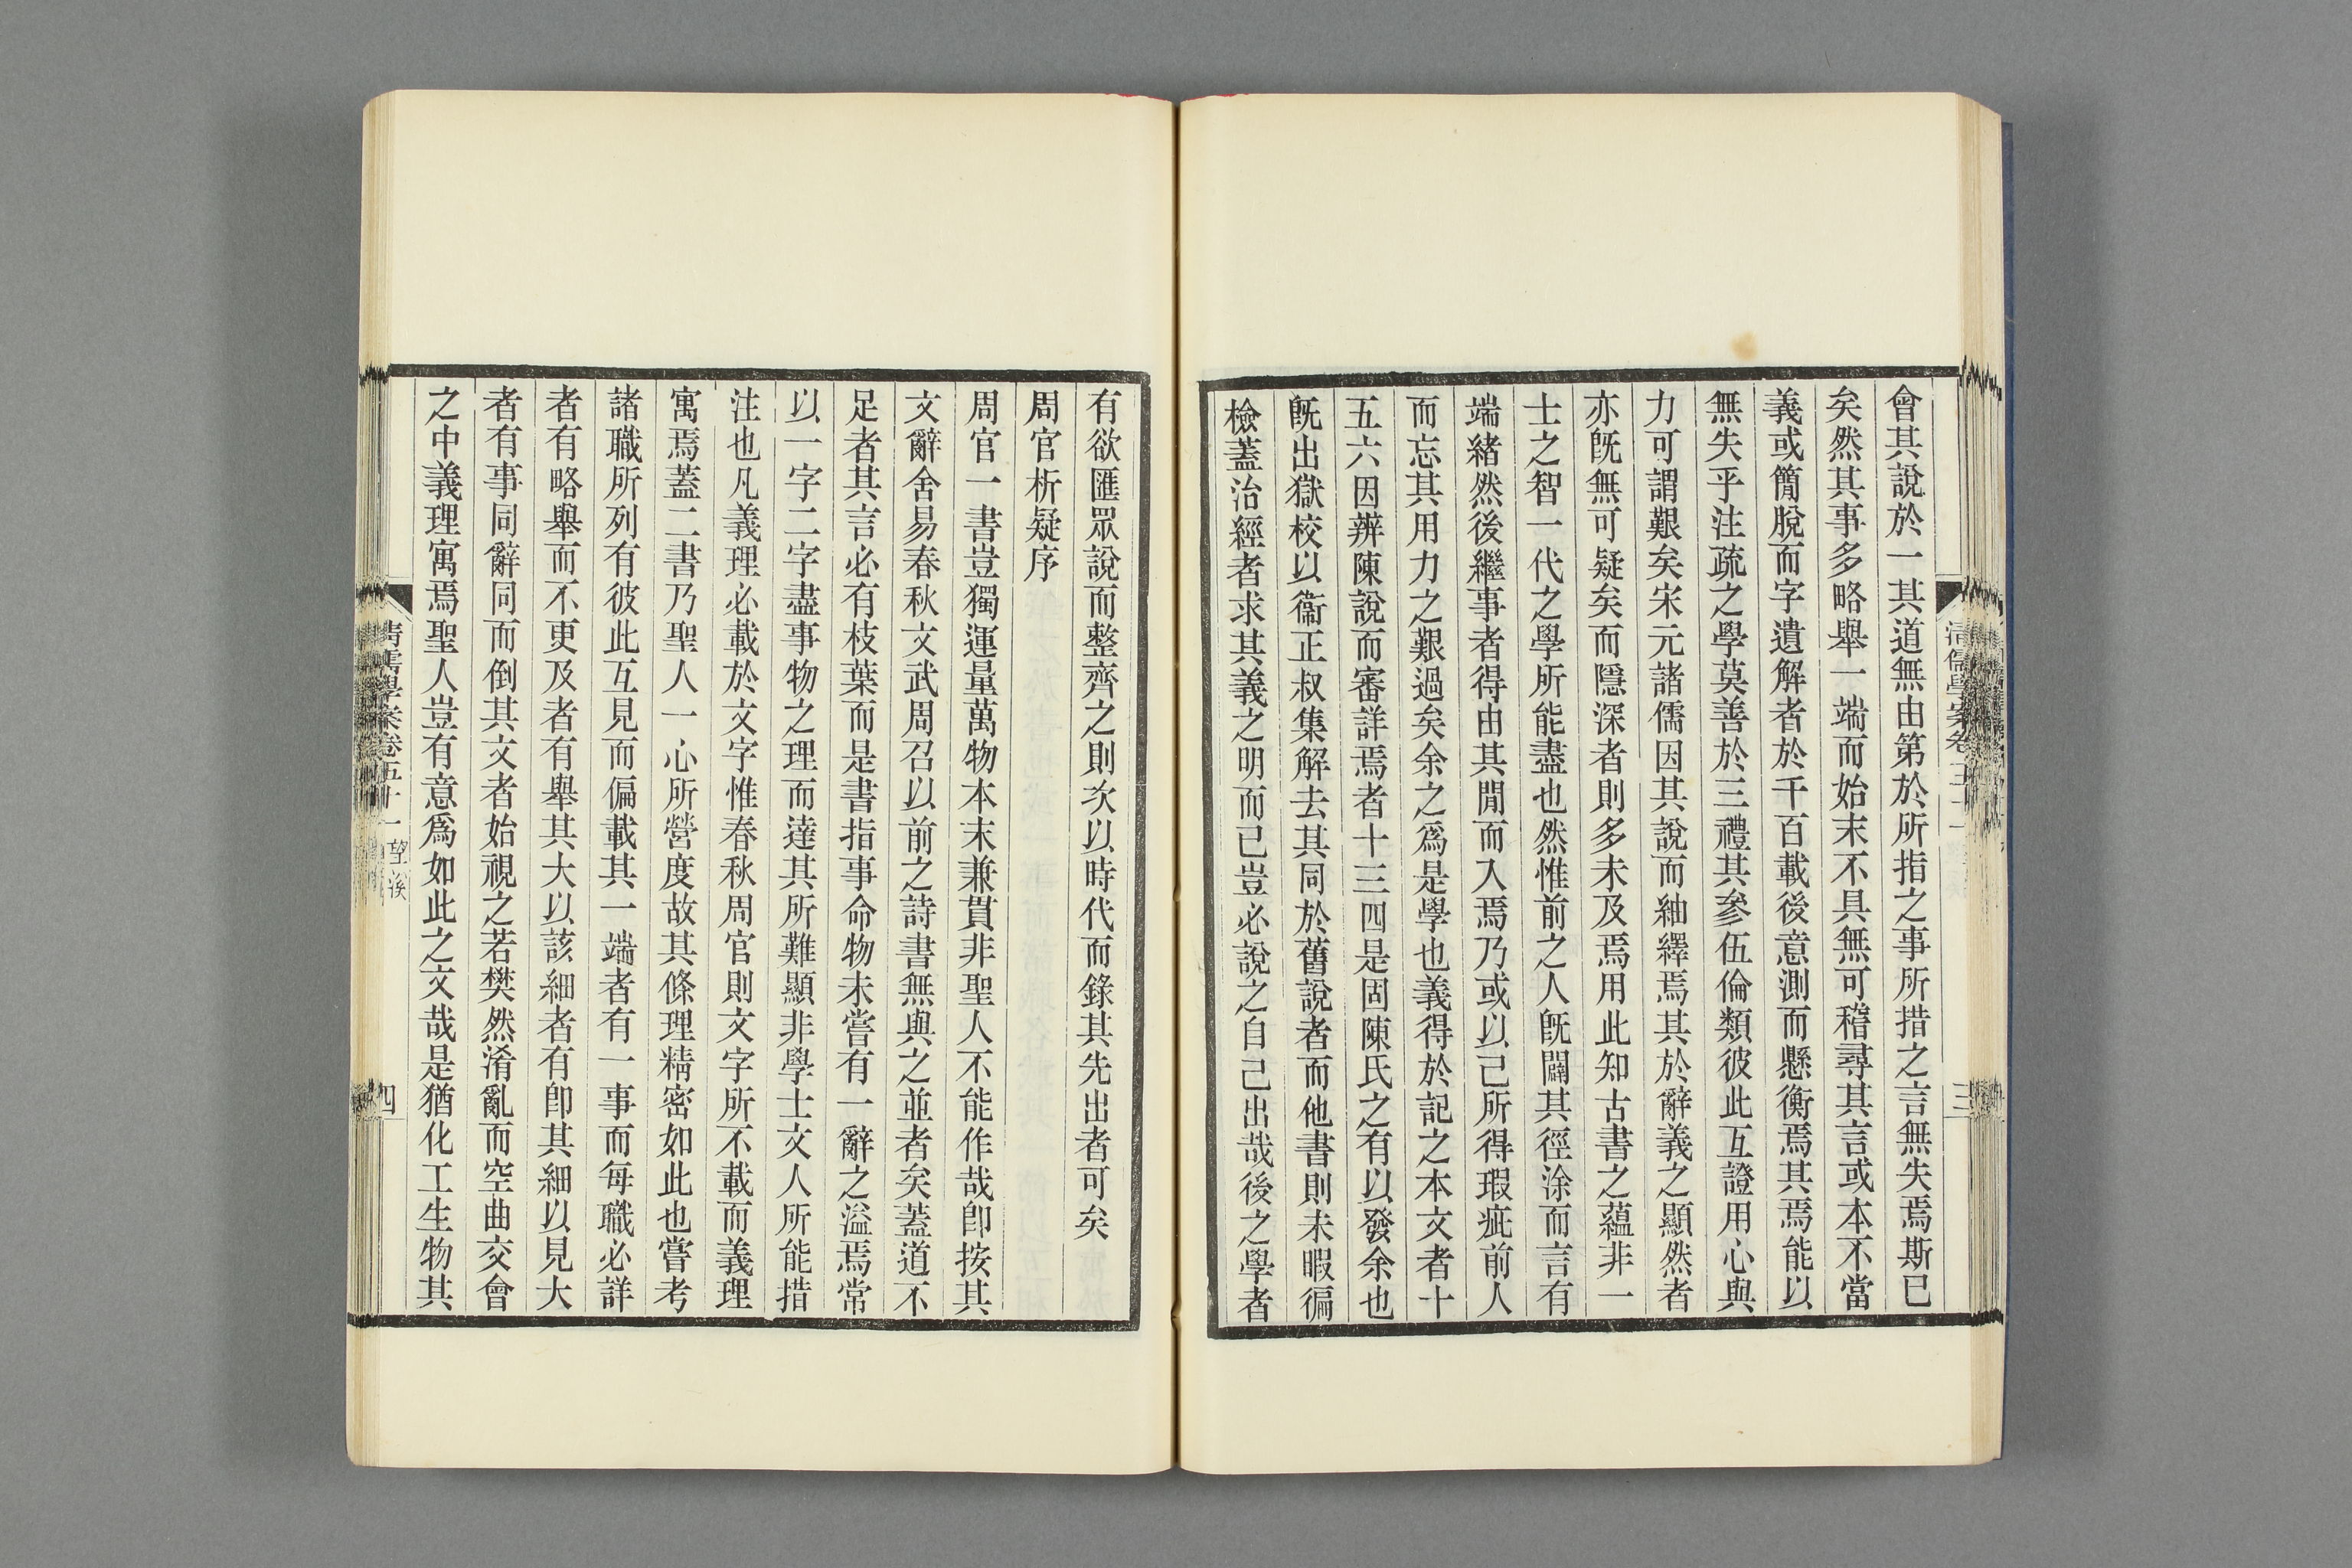 會其說於一其道無由第於所指之事所措之言無失焉斯已
矣然其事多略舉一端而始末不具無可稽尋其言或本不當
義或簡脫而字遺解者於千百載後意測而懸衡焉其焉能以
無失乎注疏之學莫善於三禮其參伍倫類彼此互證用心與
力可謂艱矣宋元諸儒因其說而紬繹焉其於辭義之顯然者
亦既無可疑矣而隱深者則多未及焉用此知古書之蘊非一
士之智一代之學所能盡也然惟前之人既闢其徑涂而言有
端緒然後繼事者得由其閒而入焉乃或以己所得瑕疵前人
而忘其用力之艱過矣余之爲是學也義得於記之本文者十
五六因辨陳說而審詳焉者十三四是固陳氏之有以發余也
既出獄校以衞正叔集解去其同於舊說者而他書則未暇徧
檢蓋治經者求其義之明而已豈必說之自己出哉後之學者
清儒學案卷五十一
三
有欲匯眾說而整齊之則次以時代而錄其先出者可矣
周官析疑序
周官一書豈獨運量萬物本末兼貫非聖人不能作哉卽按其
文辭舍易春秋文武周召以前之詩書無與之並者矣蓋道不
足者其言必有枝葉而是書指事命物未嘗有一辭之溢焉常
以一字二字盡事物之理而達其所難顯非學士文人所能措
注也凡義理必載於文字惟春秋周官則文字所不載而義理
寓焉蓋二書乃聖人一心所營度故其條理精密如此也嘗考
諸職所列有彼此互見而偏載其一端者有一事而每職必詳
者有略舉而不更及者有舉其大以該細者有卽其細以見大
者有事同辭同而倒其文者始視之若樊然淆亂而空曲交會
之中義理寓焉聖人豈有意爲如此之文哉是猶化工生物其
清儒學案卷五十一 望溪
四